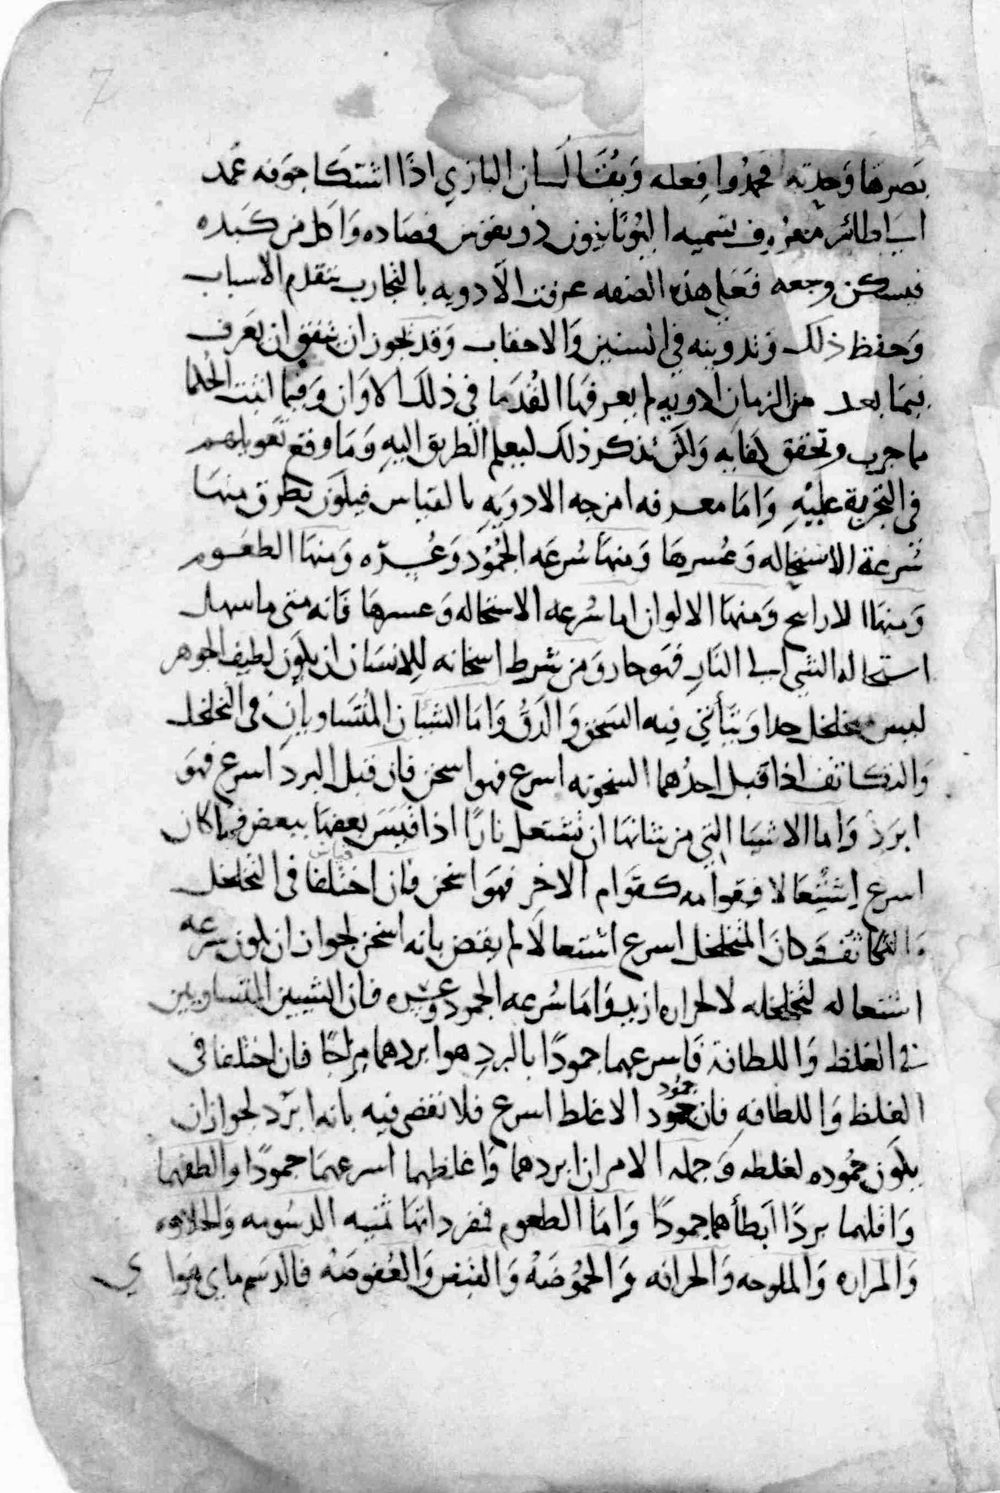 7
بصرها وحدته فحمدوا فعله ويقال ان البازي اذا اشتكا جوفه عمد
الى طائر معروف تسميه اليونانيون ذريفوس فصاده واكل من كبده
فيسكن وجعه فعلى هذه الصفه عرفت الادويه بالتجارب بتقدم الاسباب
وحفظ ذلك وتدوينه في السنين والاحقاب وقد يجوز ان يتفق ان يعرف
فيما بعد من الزمان ادويه لم يعرفها القدما في ذلك الاوان وفيما اثبت الحكما
ما جرب وتحقق كفايه ولكن نذكر ذلك ليعلم الطريق اليه وما وقع تعويلهم
في التجربة عليه واما معرفه امزجه الادويه بالقياس فيكون بطرق منها
سرعة الاستحاله وعسرها ومنها سرعه الجمود وعسره ومنها الطعوم
ومنها الاراييح ومنها الالوان اما سرعه الاستحاله وعسرها فانه متى ما سهل
استحاله الشي الى النار فهو حار ومن شرط اسخانه للانسان ان يكون لطيف الجوهر
ليس بمتخلخل جدا ويتأتى فيه السحق والدق واما الشيان المتساويان في التخلخل
والتكاثف اذا قبل احدهما السخونه اسرع فهو اسخن فان قبل البرد اسرع فهو
ابرد واما الاشيا التي من شانها ان تشتعل نارا اذا قيس بعضها ببعض فما كان
اسرع اشتعالا فقوامه كقوام الاخر فهو اسخن فان اختلفا في التخلخل
والتكاثف وكان المتخلخل اسرع اشتعالا لم يقض بانه اسخن لجواز ان يكون سرعه
اشتعاله لتخلخله لا لحراره ازيد واما سرعه الجمود وعسره فان الشيين المتساويين
في الغلظ واللطافة فاسرعهما جمودا بالبرد هو ابردهما مزاجا فان اختلفا في
الغلظ واللطافه فان جمود جمود الاغلظ اسرع فلا نقضى فيه بانه ابرد لجواز ان
يكون جموده لغلظه وجمله الامر ان ابردهما واغلظهما اسرعهما جمودا والطفهما
واقلهما بردا ابطأهما جمودا واما الطعوم فمفرداتها ثمنيه الدسومه والحلاوه
والمراره والملوحه والحرافه والحموضة والقبض والعفوصة فالدسم مايي هوايي